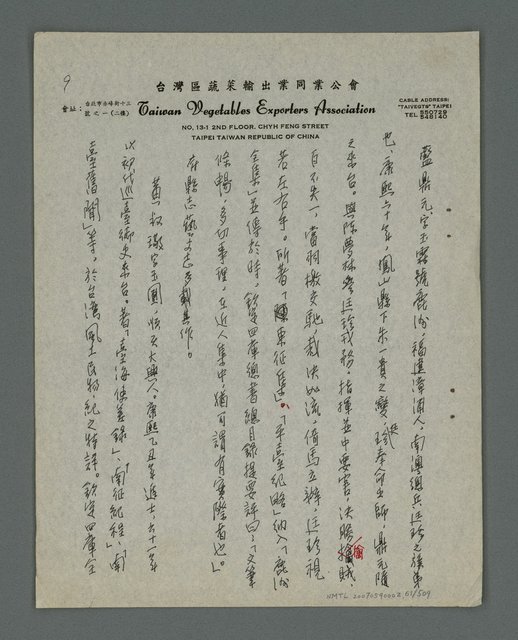 9
台灣區蔬菜輸出業同業公會
會址：台北市赤峰街十三號之一(二樓)
Taiwan Vegetables Exporters Association
CABLE ADDRESS:
"TAIVEGTS" TAIPEI
TEL 550729
548140
NO. 13-1 2ND FLOOR. CHYH FENG STREET
TAIPEI TAIWAN REPUBLIC OF CHINA
藍鼎元，字玉霖，號鹿洲，福建漳浦人。南澳總兵廷珍之族弟
也。康熙六十年，鳳山縣下朱一貴之變，廷珍奉命出師，鼎元隨
之來台。與陳夢林參廷珍戎務，指揮並中要害，決勝擒賊，
百不失一，當羽檄交馳，裁決如流，倚馬立辦，廷珍視
若左右手。所著「東征集」。「平臺紀略」納入「鹿洲
全集」並傳於時，欽定四庫總書總目錄提要評曰：「文筆
條暢，多切事理，在近人集中，猶可謂有實際者也」。
府縣志藝文志多載其作。
黃叔璥字玉圃，順天大興人。康熙己丑年進士，六十一年
以初代巡臺御史來台。著「臺海使槎錄」、「南征紀程」、「南
臺舊聞」等，於台灣風土民物，紀之特詳。欽定四庫全
NMTL 20070590002 61/509